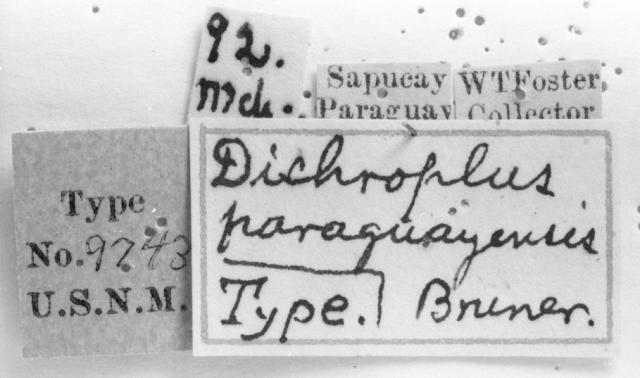 92.
Mch.
Sapucay
Paraguay
WTFoster
Collector
Type
No. 9743
U.S.N.M.
Dichroplus
paraguayensis
Type. Bruner.